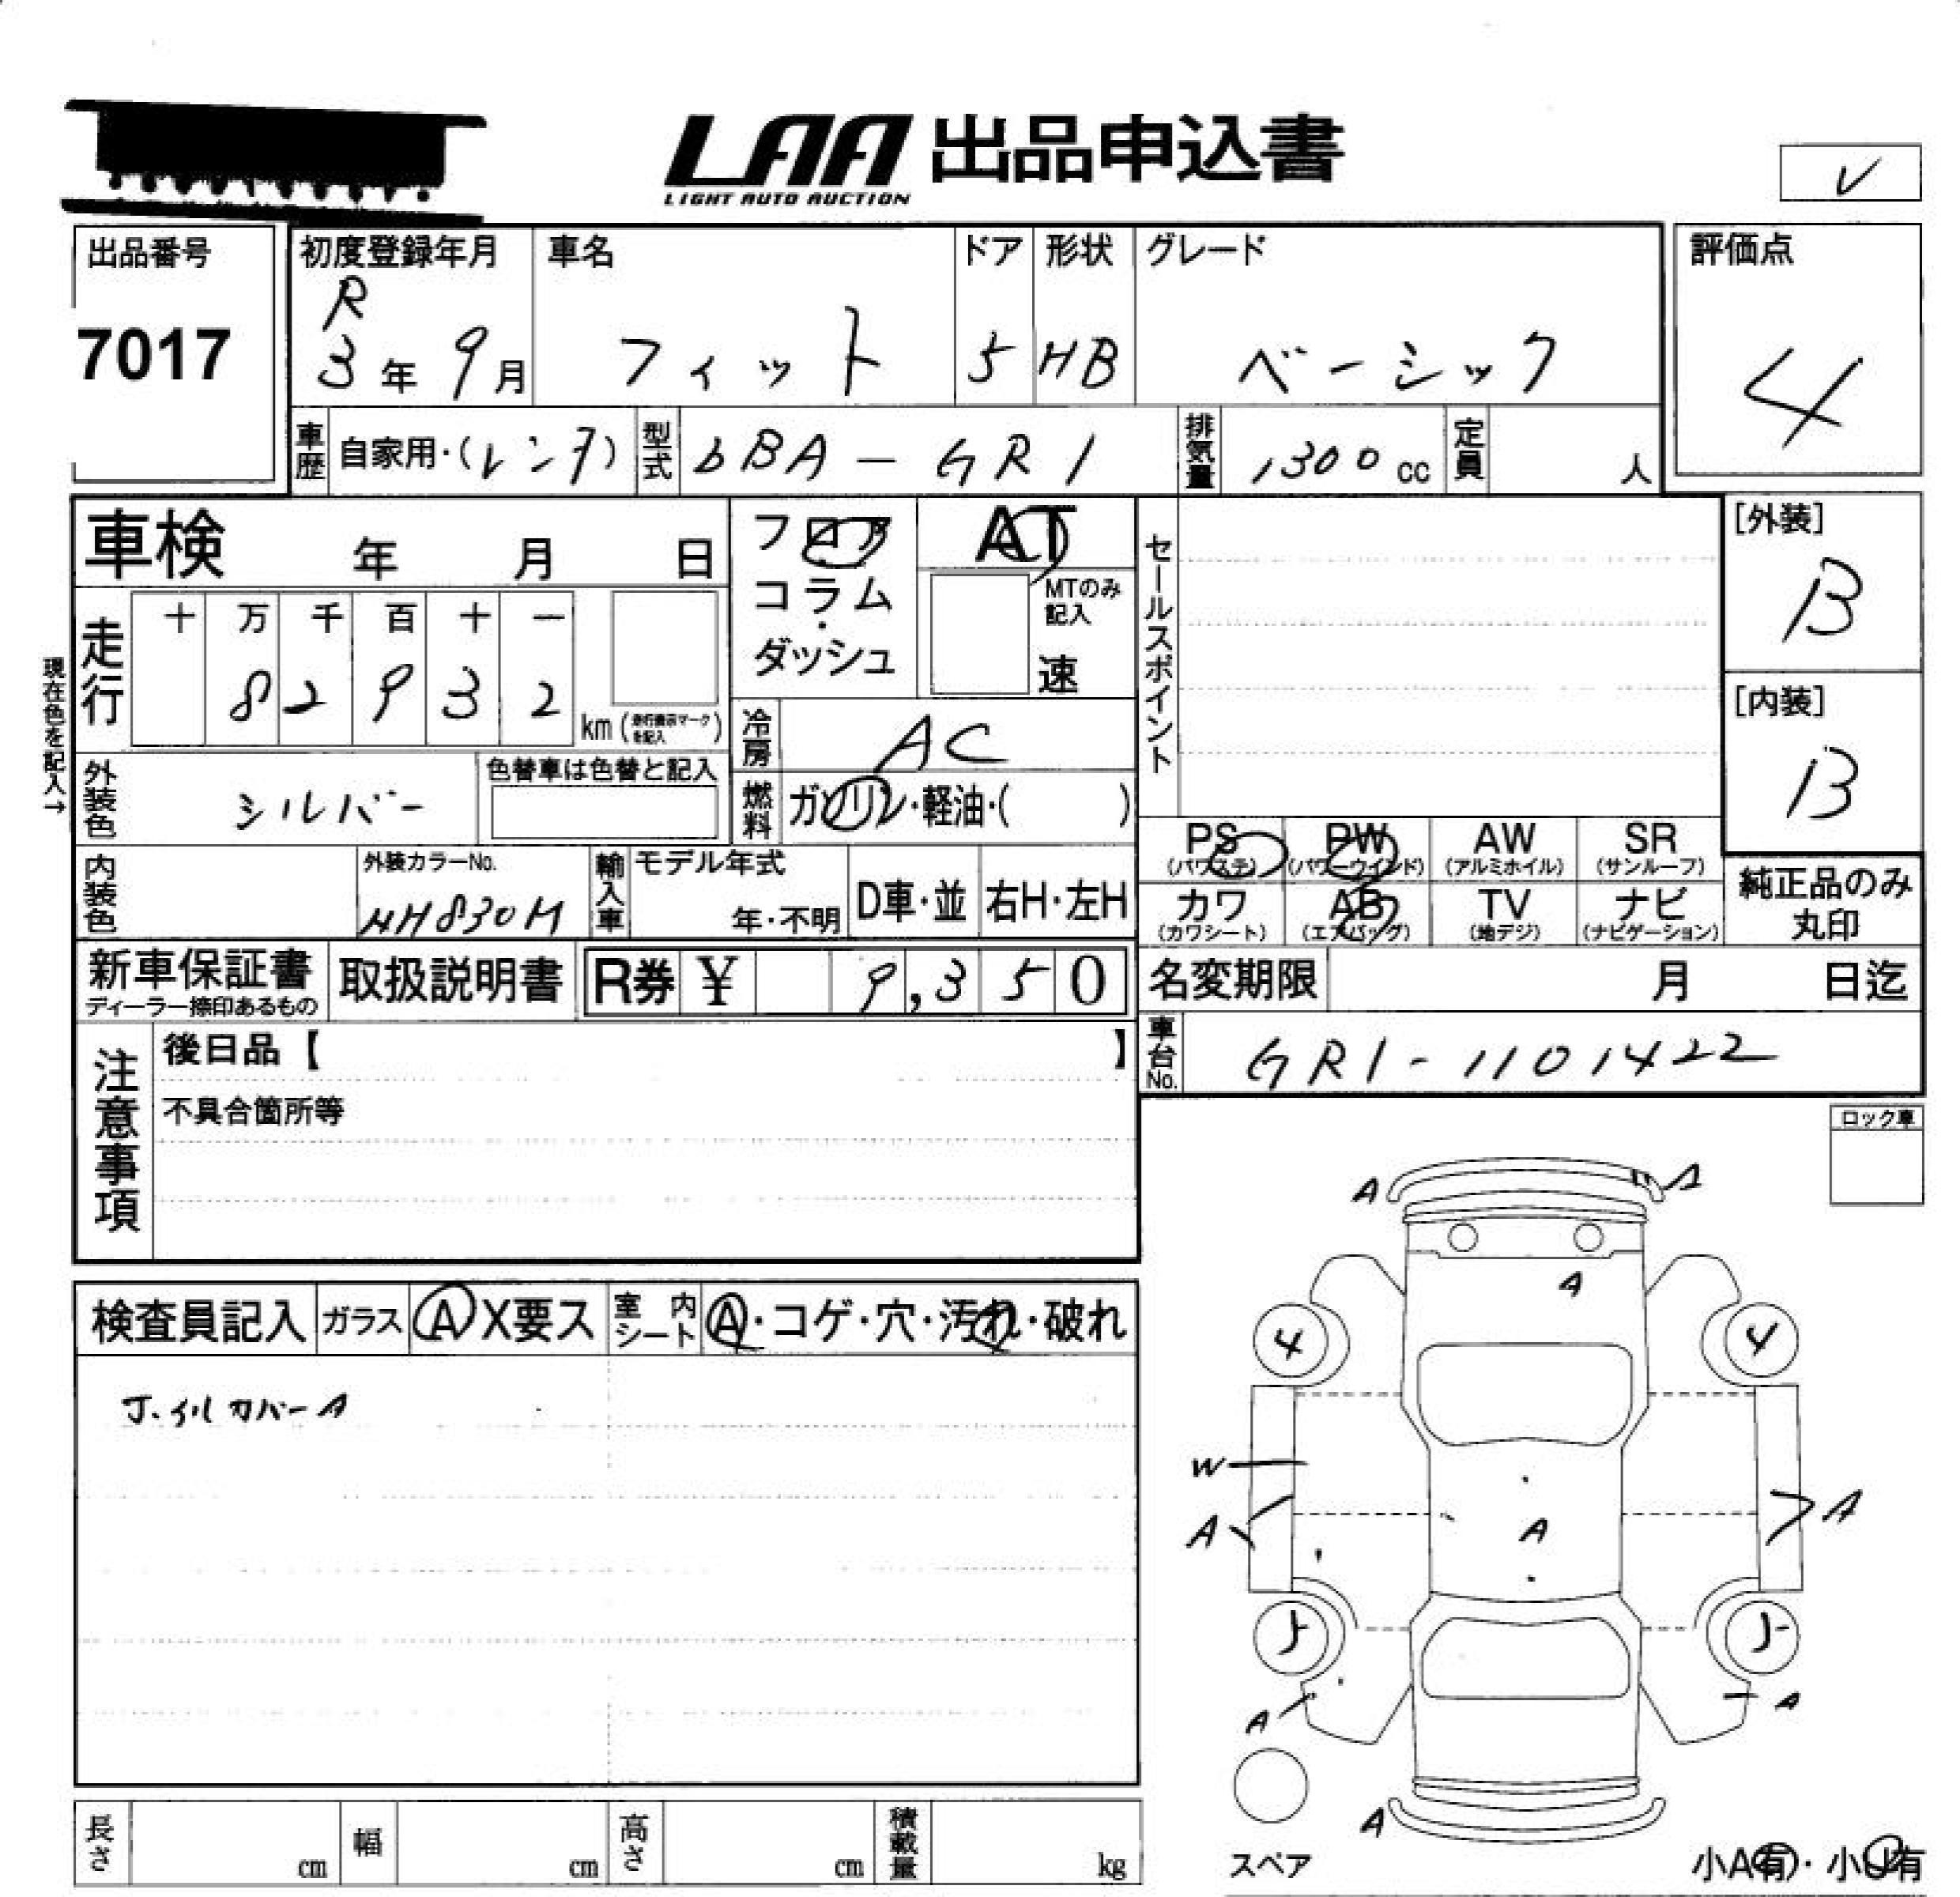 LAA 出品申込書
LIGHT AUTO AUCTION
レ
出品番号
7017
初度登録年月
R
3年 9月
車名
フィット
ドア
5
形状
HB
グレード
ベーシック
評価点
4
車歴 自家用・(レンタ)
型式 6BA-GR1
排気量 1300cc
定員 人
車検 年 月 日
フロア
コラム
・
ダッシュ
AT
MTのみ記入
速
セールスポイント
[外装]
B
[内装]
B
現在色を記入→
走行
十 万 千 百 十 一
8 2 9 3 2
km (走行表示マークを記入)
冷房 AC
外装色 シルバー
色替車は色替と記入
燃料 ガソリン・軽油・( )
PS (パワステ)
PW (パワーウインド)
AW (アルミホイル)
SR (サンルーフ)
カワ (カワシート)
AB (エアバッグ)
TV (地デジ)
ナビ (ナビゲーション)
純正品のみ
丸印
内装色
外装カラーNo.
NH830M
輸入車
モデル年式
年・不明
D車・並
右H・左H
新車保証書
ディーラー捺印あるもの
取扱説明書
R券 ¥ 9,350
名変期限 月 日迄
車台No. GR1-1101422
注意事項
後日品【 】
不具合箇所等
ロック車
検査員記入
ガラス A X要ス
室内シート A・コゲ・穴・汚れ・破れ
ホイルカバーA
A
A
A
4
4
W
A
A
A
A
A
A
スペア
小A有・小U有
長さ cm
幅 cm
高さ cm
積載量 kg